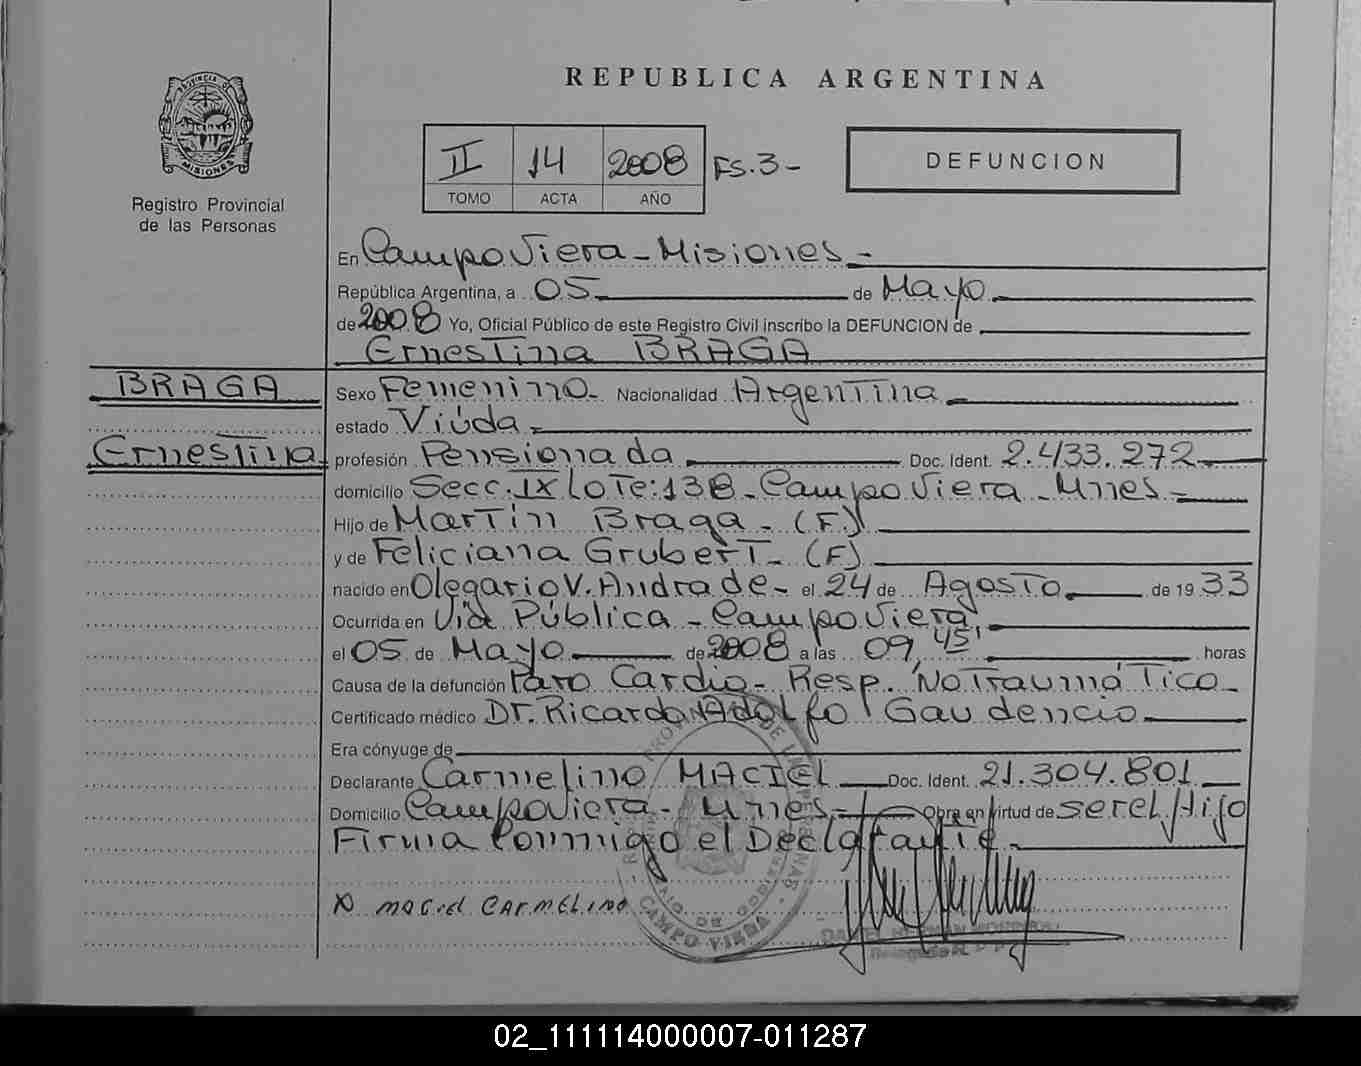 REPUBLICA ARGENTINA
PROVINCIA D
MISIONES
Registro Provincial
de las Personas
II 14 2008 FS. 3-
TOMO ACTA AÑO
DEFUNCION
En Campo Viera - Misiones -
República Argentina, a 05 de Mayo
de 2008 Yo, Oficial Público de este Registro Civil inscribo la DEFUNCION de
Ernestina BRAGA
BRAGA
Ernestina
Sexo Femenino - Nacionalidad Argentina
estado Viúda -
profesión Pensionada Doc. Ident. 2.433.272
domicilio Secc. IX lote: 138 - Campo Viera - Mnes -
Hijo de Martín Braga - (F)
y de Feliciana Grubert - (F)
nacido en Olegario V. Andrade - el 24 de Agosto de 1933
Ocurrida en Vía Pública - Campo Viera
el 05 de Mayo de 2008 a las 09,45' horas
Causa de la defunción Paro Cardio - Resp. No Traumático -
Certificado médico Dr. Ricardo Adolfo Gaudencio
Era cónyuge de
Declarante Carmelino MACIEL Doc. Ident. 21.304.801
Domicilio Campo Viera - Mnes - Obra en virtud de ser el Hijo
Firma Conmigo el Declarante -
X MACIEL CARMELINO
CAMPO VIERA
02_111114000007-011287